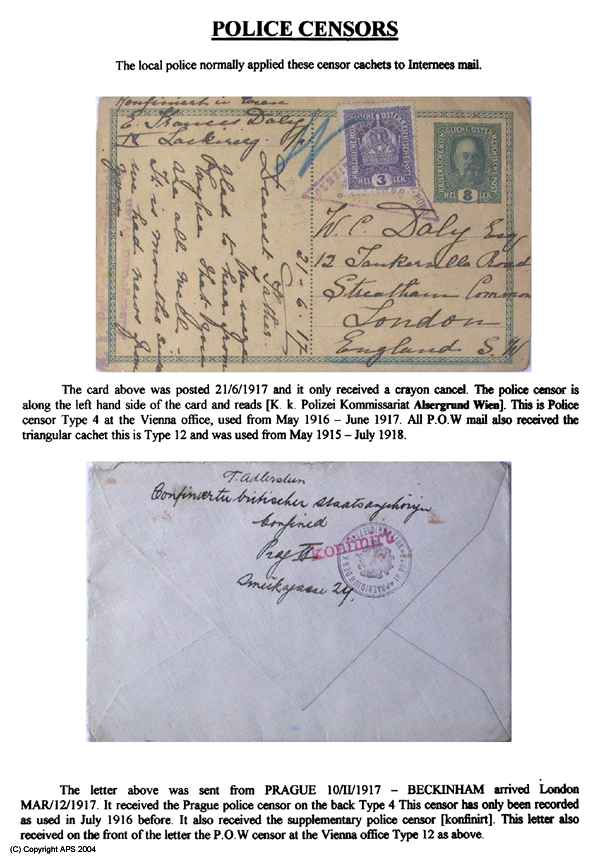 POLICE CENSORS
The local police normally applied these censor cachets to Internees mail.
Konfiniert in
E. Francis Daly
Dearest Father,
We were
glad to hear from
that you
are all well.
It is months since
we had news from
21-6-17
3
HELLER
8
W. C. Daly Esq
12 Tankerville Road
Streatham Common
London
England S.W
The card above was posted 21/6/1917 and it only received a crayon cancel. The police censor is
along the left hand side of the card and reads [K. k. Polizei Kommissariat Alsergrund Wien]. This is Police
censor Type 4 at the Vienna office, used from May 1916 – June 1917. All P.O.W mail also received the
triangular cachet this is Type 12 and was used from May 1915 – July 1918.
Confinierter britischer Staatsangehöriger
Confined
Prag II
konfinirt
24
The letter above was sent from PRAGUE 10/II/1917 – BECKINHAM arrived London
MAR/12/1917. It received the Prague police censor on the back Type 4 This censor has only been recorded
as used in July 1916 before. It also received the supplementary police censor [konfinirt]. This letter also
received on the front of the letter the P.O.W censor at the Vienna office Type 12 as above.
(C) Copyright APS 2004